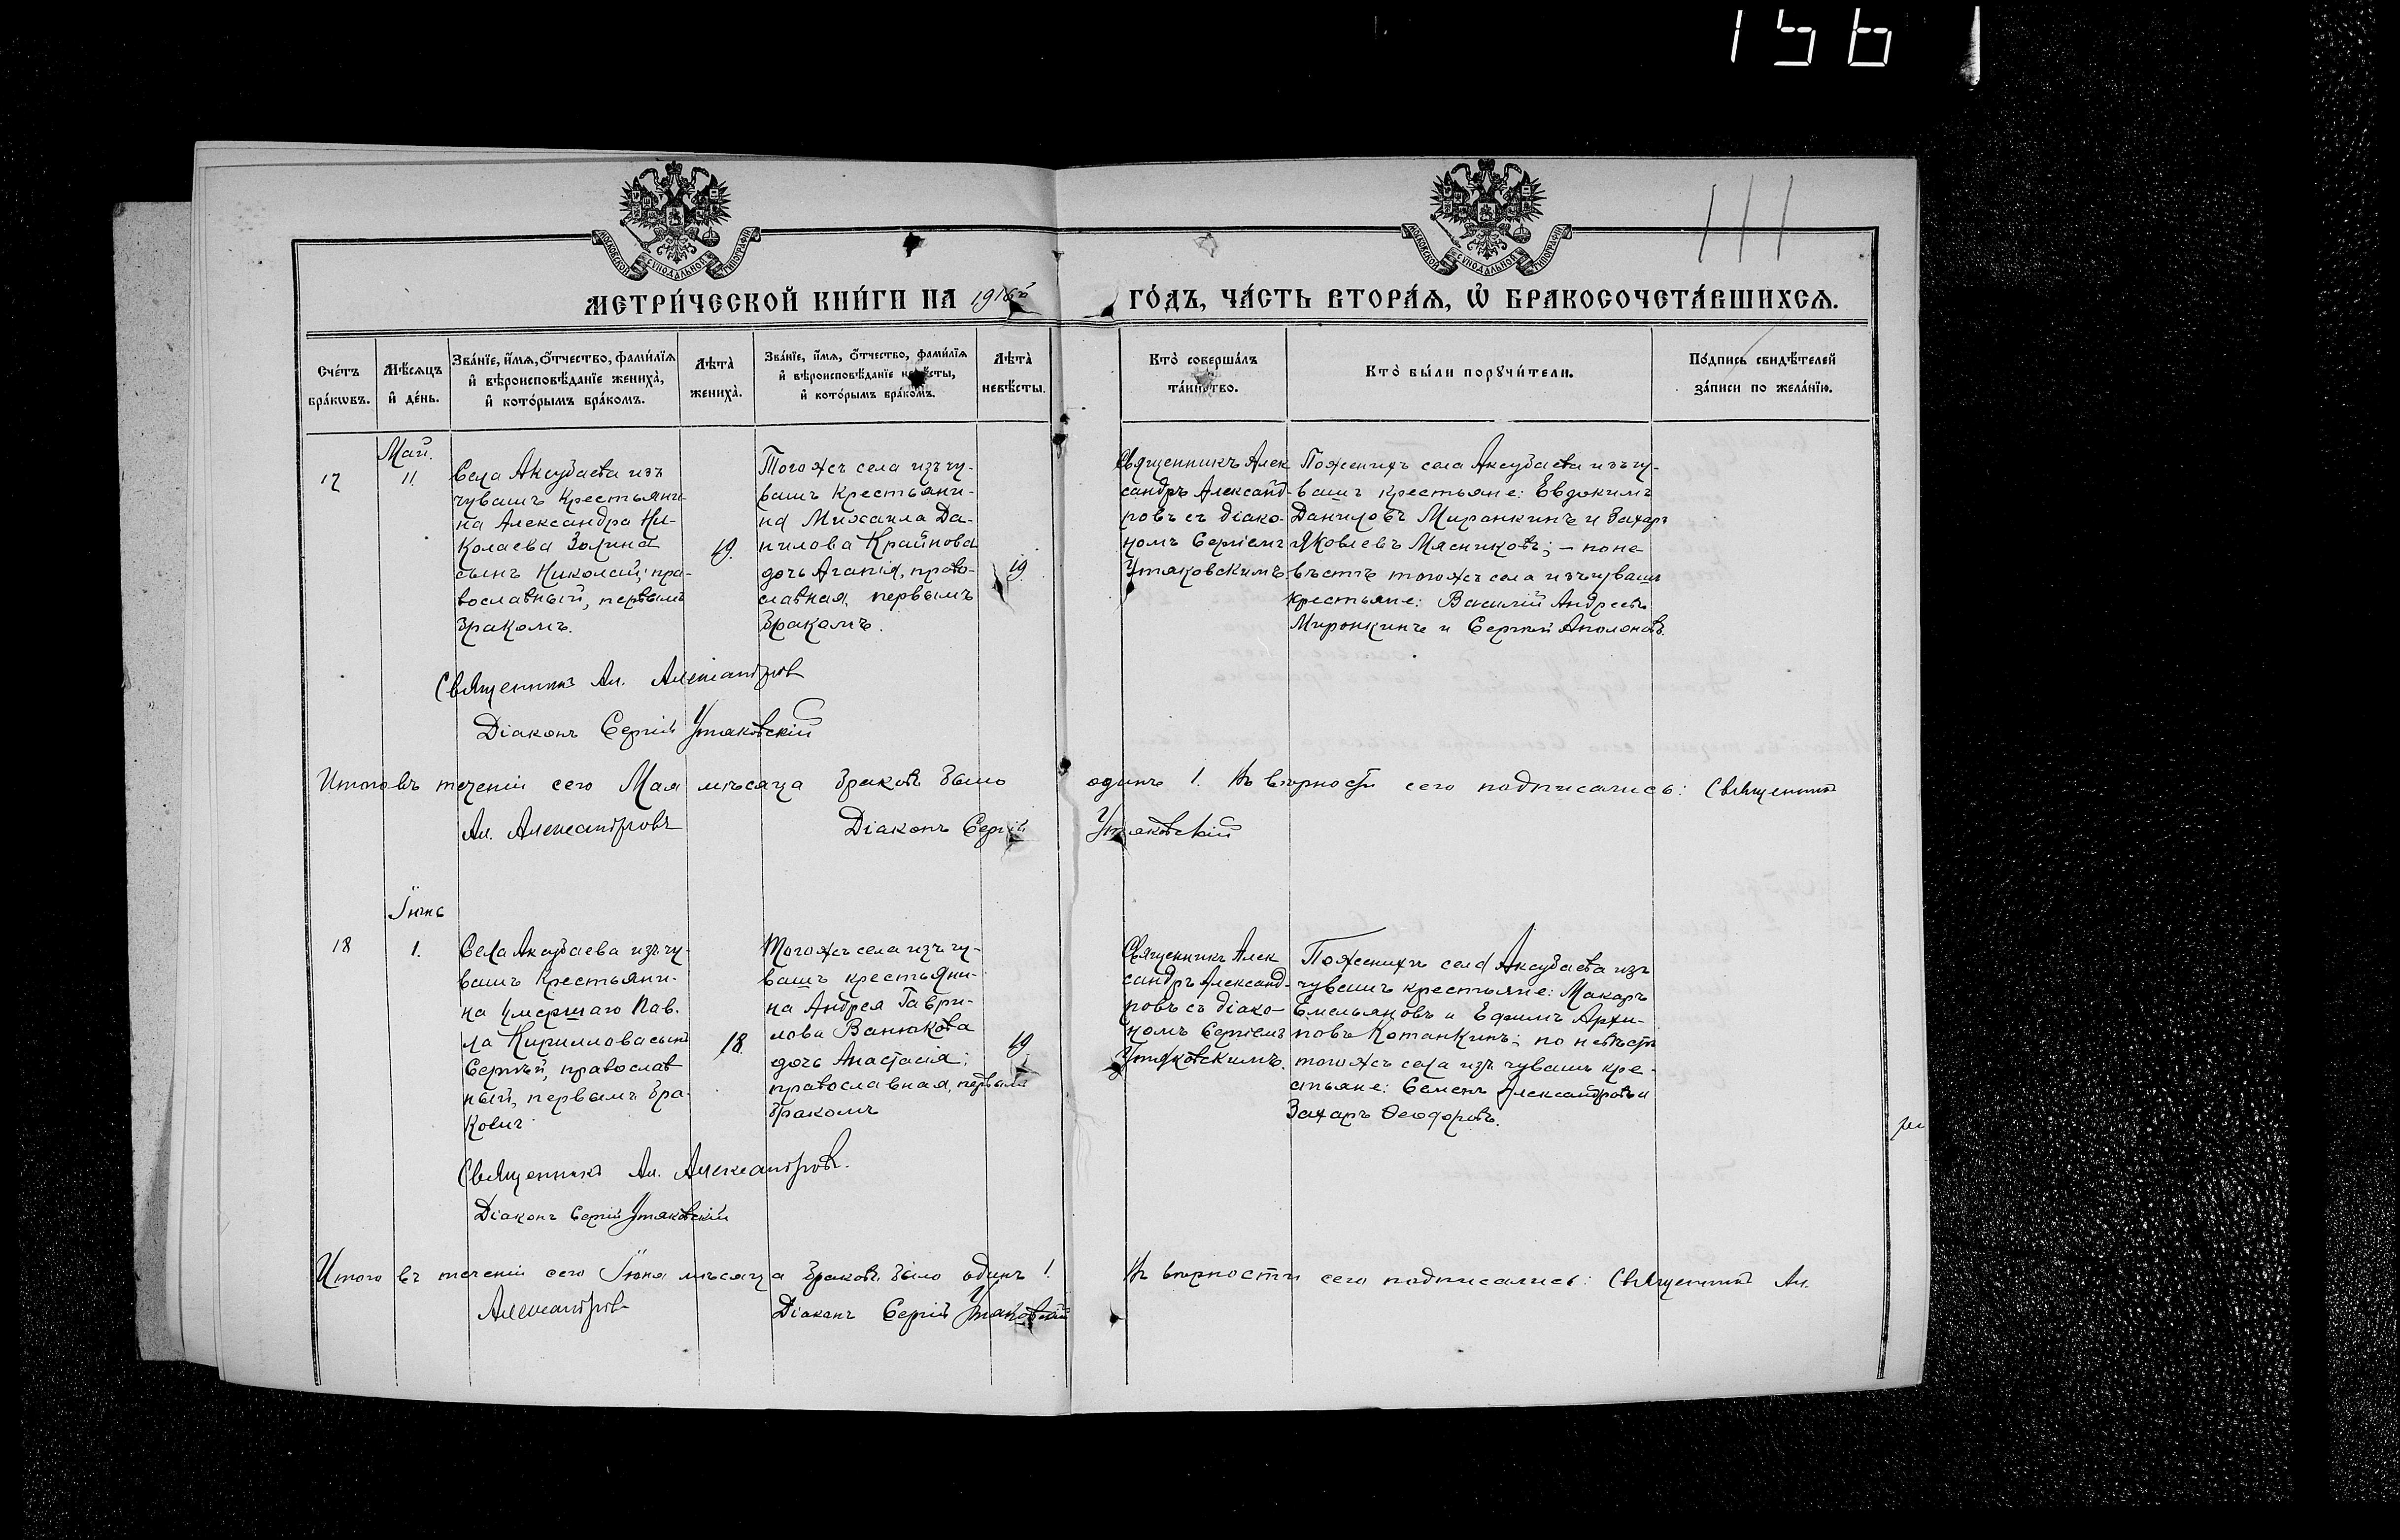 156
111
МОСКОВСКОЙ СѴНОДАЛЬНОЙ ТИПОГРАФІИ
МОСКОВСКОЙ СѴНОДАЛЬНОЙ ТИПОГРАФІИ
МЕТРИ́ЧЕСКОЙ КНИ́ГИ НА 1918й ГО́ДЪ, ЧА́СТЬ ВТОРА́Ѧ, Ѡ҆ БРАКОСОЧЕТА́ВШИХСѦ.
Сче́тъ
бра́кѡвъ.
Мѣ́сѧцъ
и҆ де́нь.
Зва́нїе, и҆́мѧ, ѻ҆́тчество, фами́лїѧ
и҆ вѣроисповѣ́данїе жениха̀,
и҆ кото́рымъ бра́комъ.
Лѣ̑та
жениха̀.
Зва́нїе, и҆́мѧ, ѻ҆́тчество, фами́лїѧ
и҆ вѣроисповѣ́данїе невѣ́сты,
и҆ кото́рымъ бра́комъ.
Лѣ̑та
невѣ́сты.
Кто̀ соверша́лъ
та́инство.
Кто̀ бы́ли порꙋчи́тели.
По́дпись свидѣ́телей
за́писи по жела́нїю.
17
Май.
11.
Села Аксубаева изъ
чувашъ крестьяни-
на Александра Ни-
колаева Золина
сынъ Николай, пра-
вославный, первымъ
бракомъ.
19.
Тогожъ села изъ чу-
вашъ крестьяни-
на Михаила Да-
нилова Крайнова
дочь Агапія, право-
славная, первымъ
бракомъ.
19
Священникъ Алек
сандръ Александ-
ровъ съ діако-
номъ Сергіемъ
Утяковскимъ.
По женихѣ села Аксубаева изъ чу-
вашъ крестьяне: Евдокимъ
Даниловъ Миронкинъ и Захаръ
Яковлевъ Мясниковъ; - по не-
вѣстѣ тогожъ села изъ чувашъ
крестьяне: Василій Андреевъ
Миронкинъ и Сергій Аполоновъ.
Священникъ Ал. Александровъ
Діаконъ Сергій Утяковскій
Итого въ теченіи сего Мая мѣсяца браковъ было одинъ 1. Къ вѣрности сего подписались: Священникъ
Ал. Александровъ Діаконъ Сергій Утяковскій
Іюнь
18
1.
Села Аксубаева изъ чу-
вашъ крестьяни-
на умершаго Пав-
ла Кириллова сынъ
Сергій, православ
ный, первымъ бра-
комъ
18.
Тогожъ села изъ чу-
вашъ крестьяни-
на Андрея Гаври-
лова Ванюкова
дочь Анастасія;
православная, первымъ
бракомъ
19.
Священникъ Алек
сандръ Александ-
ровъ съ діако-
номъ Сергіемъ
Утяковскимъ.
По женихѣ села Аксубаева изъ
чувашъ крестьяне: Макаръ
Емельяновъ и Ефимъ Архи-
повъ Котанкинъ; по невѣстѣ
тогожъ села изъ чувашъ кре-
стьяне: Семенъ Александровъ и
Захаръ Ѳеодоровъ.
Священникъ Ал. Александровъ.
Діаконъ Сергій Утяковскій
Итого въ теченіи сего Іюня мѣсяца браковъ было одинъ 1. Къ вѣрности сего подписались: Священникъ Ал.
Александровъ Діаконъ Сергій Утяковскій